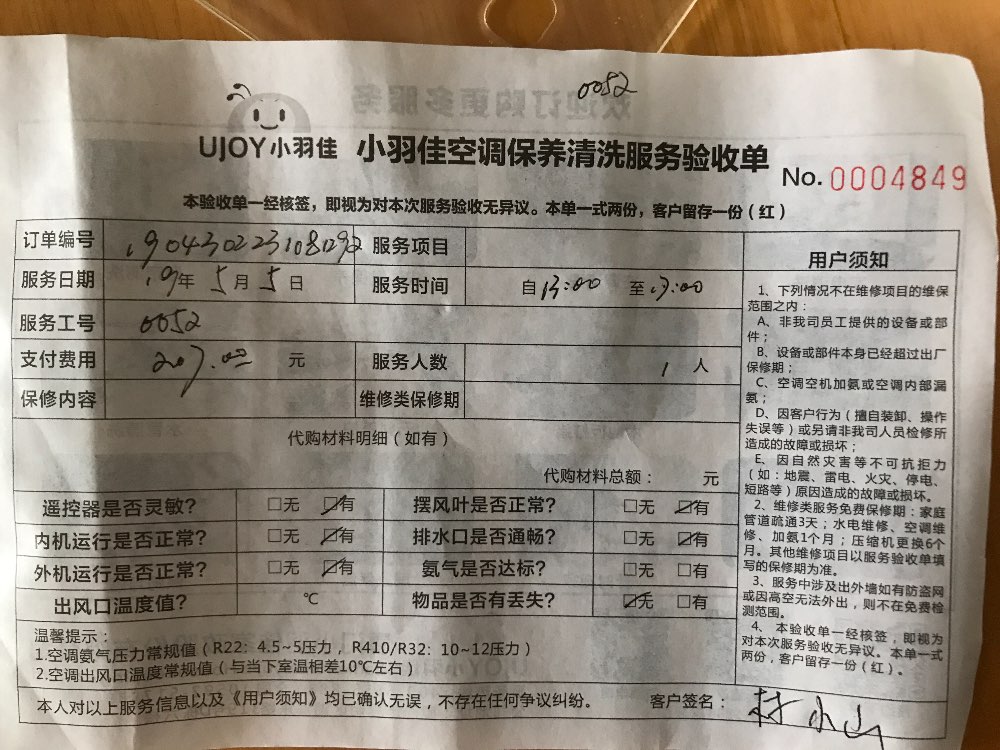 0052
UJOY小羽佳 小羽佳空调保养清洗服务验收单
No. 0004849
本验收单一经核签，即视为对本次服务验收无异议。本单一式两份，客户留存一份（红）
订单编号 服务项目
服务日期 19年5月5日 服务时间 自13:00 至17:00
服务工号 0052
支付费用 207.00 元 服务人数 1 人
保修内容 维修类保修期
代购材料明细（如有）
代购材料总额： 元
遥控器是否灵敏？ □无 ☑有 摆风叶是否正常？ □无 ☑有
内机运行是否正常？ □无 ☑有 排水口是否通畅？ □无 ☑有
外机运行是否正常？ □无 ☑有 氨气是否达标？ □无 □有
出风口温度值？ ℃ 物品是否有丢失？ ☑无 □有
温馨提示：
1.空调氨气压力常规值（R22：4.5~5压力，R410/R32：10~12压力）
2.空调出风口温度常规值（与当下室温相差10℃左右）
本人对以上服务信息以及《用户须知》均已确认无误，不存在任何争议纠纷。 客户签名：
用户须知
1、下列情况不在维修项目的维保
范围之内：
A、非我司员工提供的设备或部
件；
B、设备或部件本身已经超过出厂
保修期；
C、空调空机加氨或空调内部漏
氨；
D、因客户行为（擅自装卸、操作
失误等）或另请非我司人员检修所
造成的故障或损坏；
E、因自然灾害等不可抗拒力
（如：地震、雷电、火灾、停电、
短路等）原因造成的故障或损坏。
2、维修类服务免费保修期：家庭
管道疏通3天；水电维修、空调维
修、加氨1个月；压缩机更换6个
月。其他维修项目以服务验收单填
写的保修期为准。
3、服务中涉及出外墙如有防盗网
或因高空无法外出，则不在免费检
测范围。
4、本验收单一经核签，即视为
对本次服务验收无异议。本单一式
两份，客户留存一份（红）。